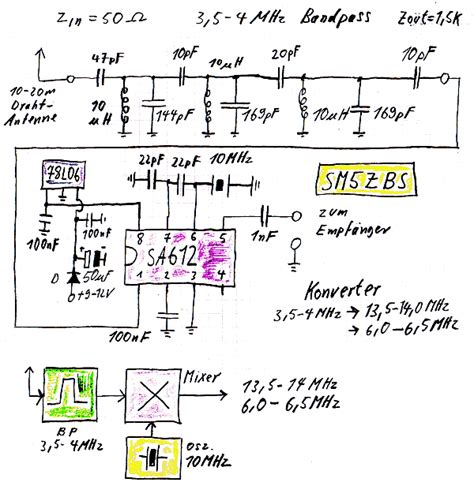 Zin = 50Ω 3,5-4 MHz Bandpass Zout=1,5K
47pF 10pF 10µH 20pF 10pF
10-20m
Draht-
Antenne
10
µH
144pF 169pF 10µH 169pF
22pF 22pF 10MHz
78L06
SM5ZBS
100nF
100nF
8 7 6 5
SA612
1 2 3 4
1nF
zum
Empfänger
50µF
D
+9-12V
100nF
Konverter
3,5-4MHz → 13,5-14,0 MHz
→ 6,0-6,5MHz
Mixer
13,5-14 MHz
6,0-6,5MHz
BP
3,5-4MHz
Osz.
10MHz